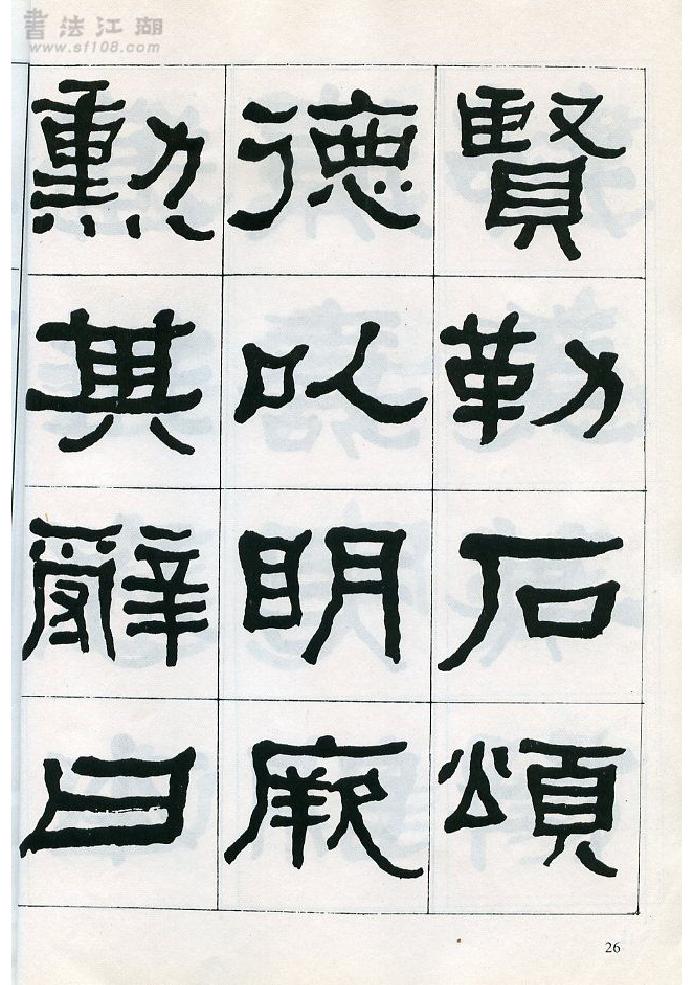 書法江湖
www.sf108.com
賢勒石頌
德以明厥
勳其辭曰
26